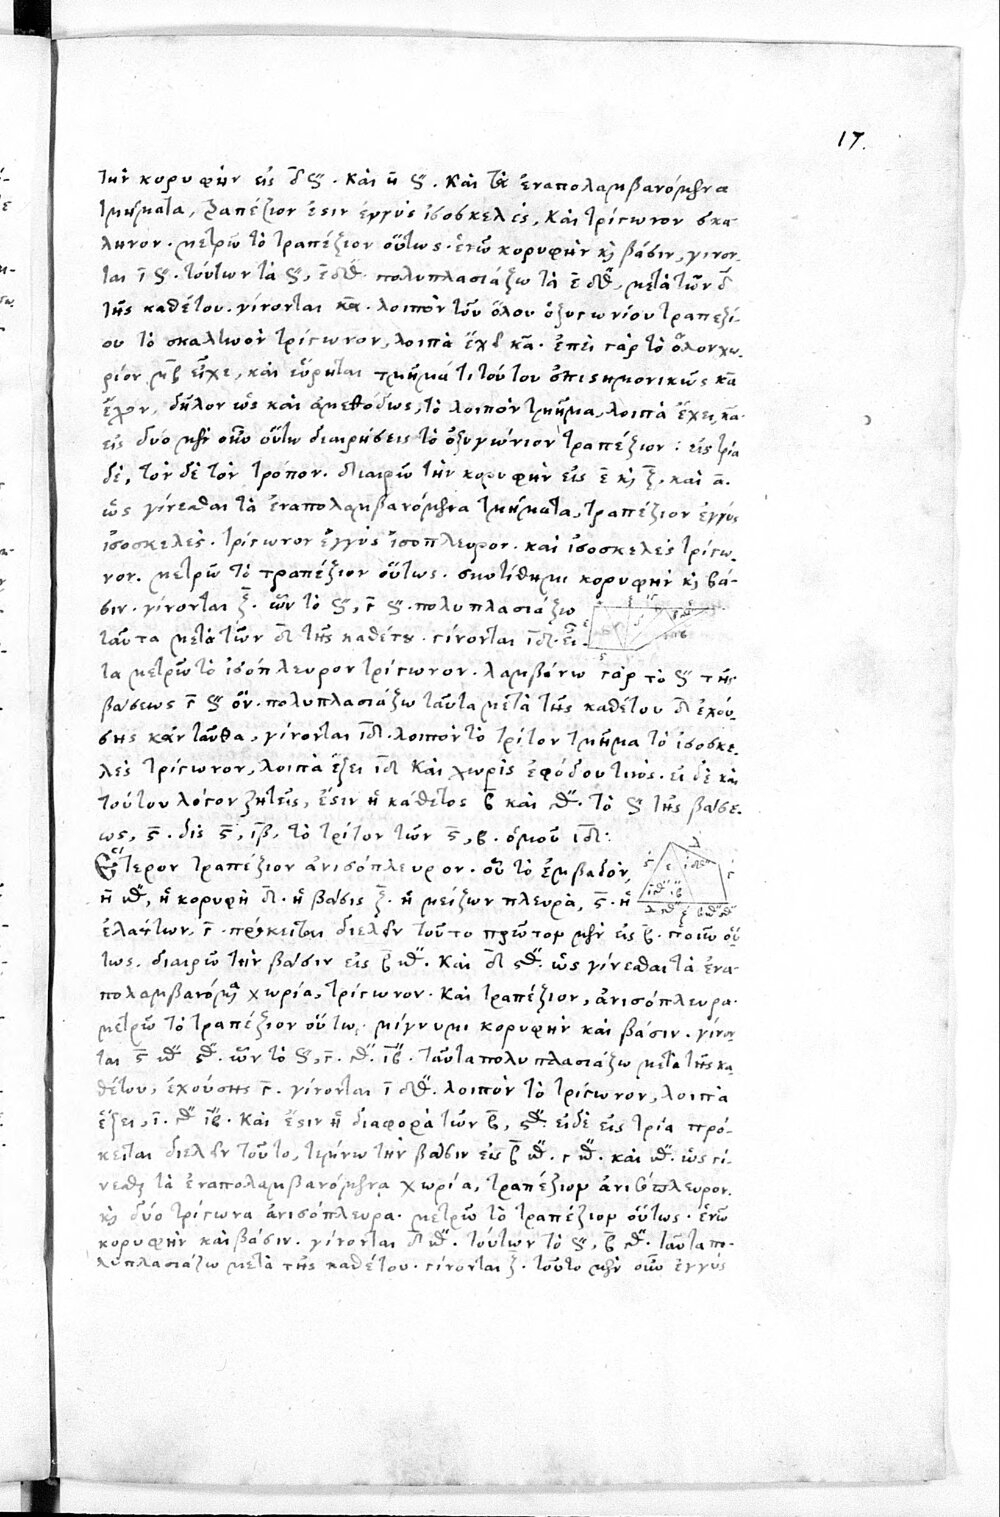 17.
τὴν κορυφὴν εἰς δ̄ ϛʹ. καὶ η̄ ϛʹ. καὶ τὰ ἐναπολαμβανόμενα
τμήματα, τραπέζιον ἐστιν ἐγγὺς ἰσοσκελὲς, καὶ τρίγωνον σκα-
ληνον. μετρῶ τὸ τραπέζιον οὕτως. ἑνῶ κορυφὴν κ̀ βάσιν, γίνον-
ται ῑ ϛʹ. τούτων τὰ ϛʹ, ε̄ δʹ. πολυπλασιάζω τὰ ε̄ δʹ, μετὰ τῶν δ̄
τῆς καθέτου. γίνονται κ̄α. λοιπὸν τοῦ ὅλου ὀξυγωνίου τραπεζί-
ου τὸ σκαληνὸν τρίγωνον, λοιπὰ ἔχει κ̄α. ἐπεὶ γὰρ τὸ ὅλον χω-
ρίον μ̄β εἶχε, καὶ εὕρηται τμῆμά τι τούτου ἐπιστημονικῶς κ̄α
ἔχον, δῆλον ὡς καὶ ἀμεθόδως, τὸ λοιπὸν τμῆμα, λοιπὰ ἔχει κ̄α.
εἰς δύο μὲν οὖν οὕτω διαιρήσεις τὸ ὀξυγώνιον τραπέζιον: εἰς τρία
δὲ, τὸν δὲ τὸν τρόπον. διαιρῶ τὴν κορυφὴν εἰς ε̄ κ̀ ξ̄, καὶ ᾱ.
ὡς γίνεσθαι τὰ ἐναπολαμβανόμενα τμήματα, τραπέζιον ἐγγὺς
ἰσοσκελὲς. τρίγωνον ἐγγὺς ἰσόπλευρον. καὶ ἰσοσκελὲς τρίγω-
νον. μετρῶ τὸ τραπέζιον οὕτως. συντίθημι κορυφὴν κ̀ βά-
σιν. γίνονται ζ̄. ὧν τὸ ϛʹ, γ̄ ϛʹ. πολυπλασιάζω
ταῦτα μετὰ τῶν δ̄ τῆς καθέτου. γίνονται ῑδ. εἶ-
τα μετρῶ τὸ ἰσόπλευρον τρίγωνον. λαμβάνω γὰρ τὸ ϛʹ τῆς
βάσεως γ̄ ϛʹ ὄν. πολυπλασιάζω ταῦτα μετὰ τῆς καθέτου δ̄ ἐχού-
σης κἀνταῦθα, γίνονται ῑδ. λοιπὸν τὸ τρίτον τμῆμα τὸ ἰσοσκε-
λὲς τρίγωνον, λοιπὰ ἕξει ῑδ καὶ χωρὶς ἐφόδου τινὸς. εἰ δὲ καὶ
τούτου λόγον ζητεῖς, ἔστιν ἡ κάθετος β̄ καὶ γʹ. τὸ ϛʹ τῆς βάσε-
ως, ς̄. δὶς ς̄, ῑβ. τὸ τρίτον τῶν ς̄, β̄. ὁμοῦ ῑδ:
Ἕτερον τραπέζιον ἀνισόπλευρον. οὗ τὸ ἐμβαδὸν,
ἡ κορυφὴ δ̄. ἡ βάσις ζ̄. ἡ μείζων πλευρὰ, ς̄. ἡ
ἐλάττων, γ̄. πρόκειται διελεῖν τοῦτο πρῶτον μὲν εἰς β̄. ποιῶ οὕ-
τως. διαιρῶ τὴν βάσιν εἰς β̄ καὶ δ̄ ὡς γίνεσθαι τὰ ἐνα-
πολαμβανόμενα χωρία, τρίγωνον. καὶ τραπέζιον, ἀνισόπλευρα.
μετρῶ τὸ τραπέζιον οὕτως. μίγνυμι κορυφὴν καὶ βάσιν. γίνον-
ται ὧν τὸ ϛʹ, γ̄. ταῦτα πολυπλασιάζω μετὰ τῆς κα-
θέτου, ἐχούσης γ̄. γίνονται ῑ λοιπὸν τὸ τρίγωνον, λοιπὰ
ἕξει, ῑ. καὶ ἔστιν ἡ διαφορὰ τῶν β̄, εἰ δὲ εἰς τρία πρό-
κειται διελεῖν τοῦτο, τέμνω τὴν βάσιν εἰς β̄ καὶ ὡς γί-
νεσθαι τὰ ἐναπολαμβανόμενα χωρία, τραπέζιον ἀνισόπλευρον.
κ̀ δύο τρίγωνα ἀνισόπλευρα. μετρῶ τὸ τραπέζιον οὕτως. ἑνῶ
κορυφὴν καὶ βάσιν. γίνονται δ̄ τούτων τὸ ϛʹ, β̄ ταῦτα πο-
λυπλασιάζω μετὰ τῆς καθέτου. γίνονται ζ̄. τοῦτο μὲν οὖν ἐγγὺς